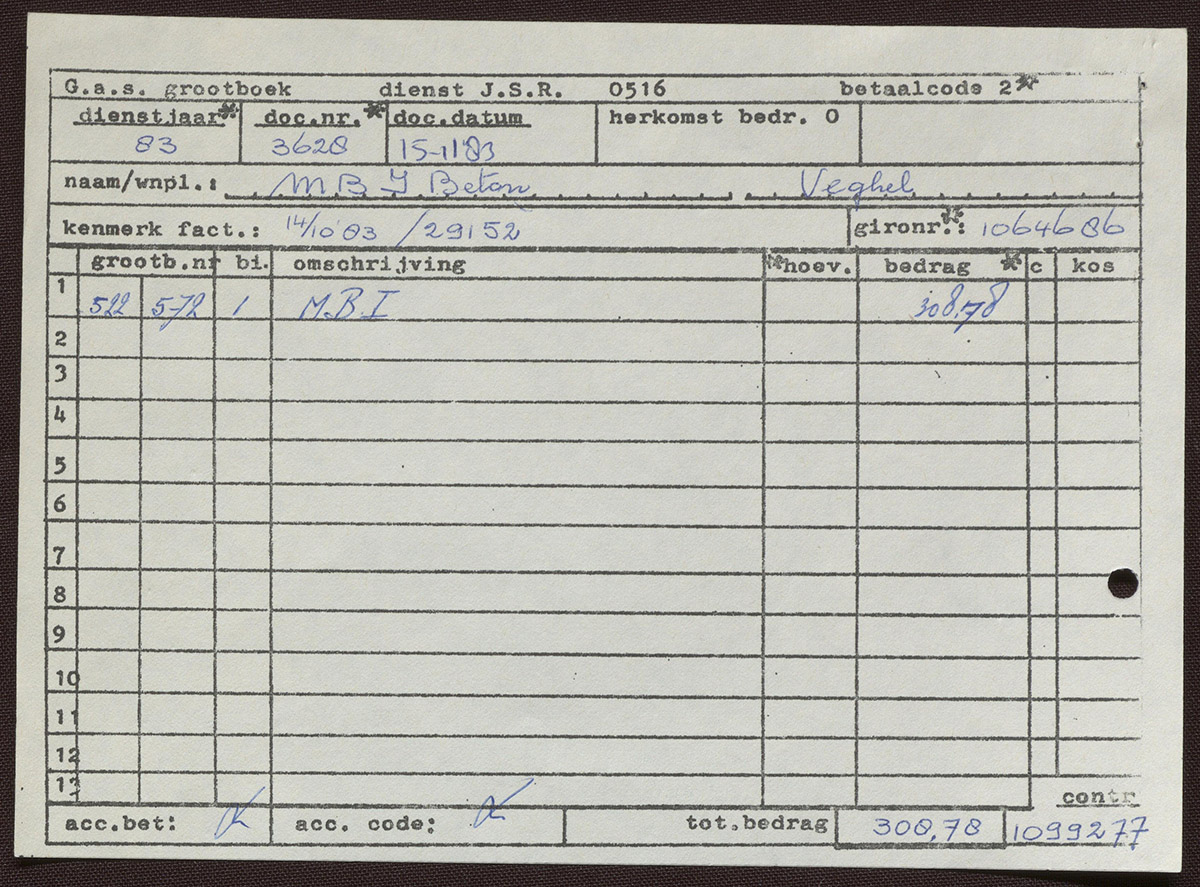 G.a.s. grootboek dienst J.S.R. 0516 betaalcode 2*
dienstjaar* doc.nr.* doc.datum herkomst bedr. 0
83 3628 15-11'83
naam/wnpl.: M B I Beton Veghel
kenmerk fact.: 14/10'83 /29152 gironr.*: 1064686
grootb.nr bi. omschrijving *hoev. bedrag * c kos
1 522 572 1 M.B.I 308,78
2
3
4
5
6
7
8
9
10
11
12
13
contr
acc.bet: acc. code: tot.bedrag 308,78 1099277